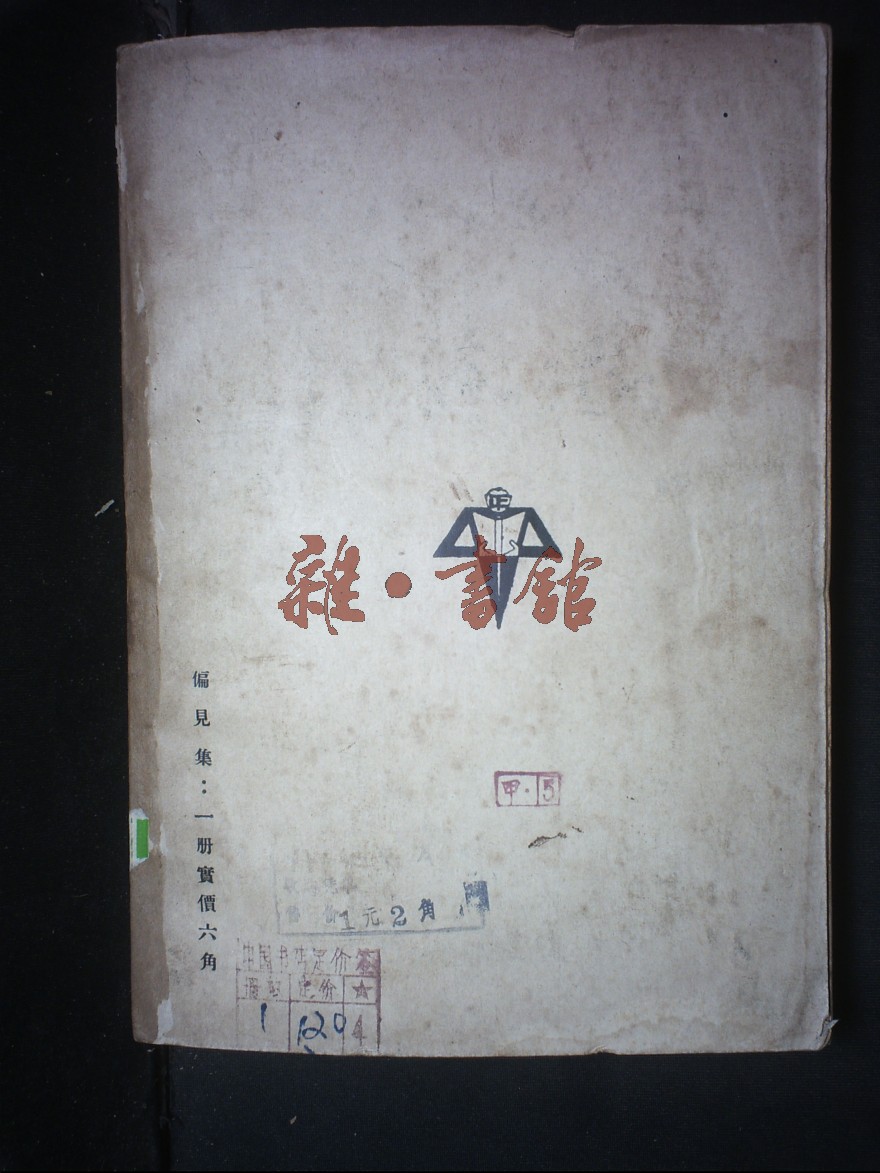 正
雜·書館
偏見集：一册實價六角
甲·5
1元2角
中国书店定价签
定价
1 1.20 4